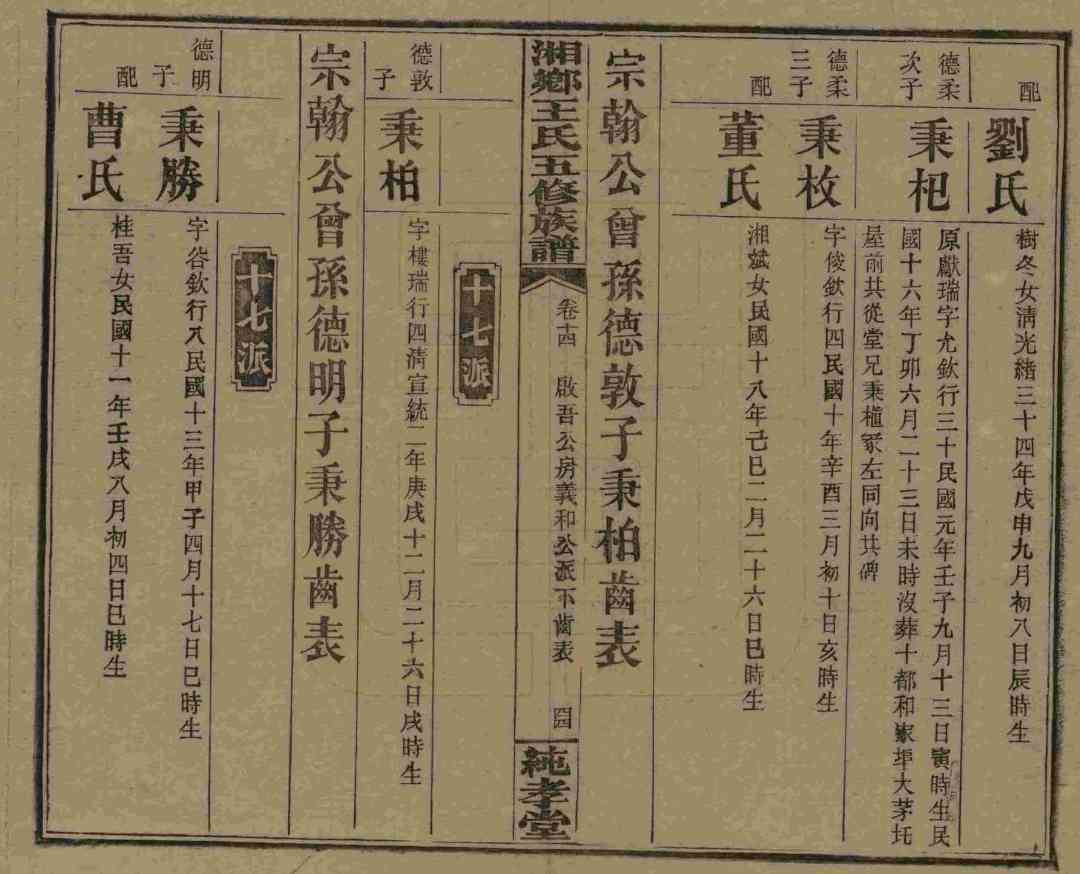 配
劉氏
樹冬女清光緒三十四年戊申九月初八日辰時生
德柔
次子
秉杞
原獻瑞字允欽行三十民國元年壬子九月十三日寅時生民
國十六年丁卯六月二十三日未時沒葬十都和家埠大茅坵
屋前共從堂兄秉植冢左同向共碑
德柔
三子
秉枚
字俊欽行四民國十年辛酉三月初十日亥時生
配
董氏
湘斌女民國十八年己巳二月二十六日巳時生
宗翰公曾孫德敦子秉柏齒表
湘鄉王氏五修族譜
卷十四
啟吾公房義和公派下齒表
四
純孝堂
十七派
德敦
子
秉柏
字樓瑞行四清宣統二年庚戌十二月二十六日戌時生
宗翰公曾孫德明子秉勝齒表
十七派
德明
子
秉勝
字谷欽行八民國十三年甲子四月十七日巳時生
配
曹氏
桂吾女民國十一年壬戌八月初四日巳時生